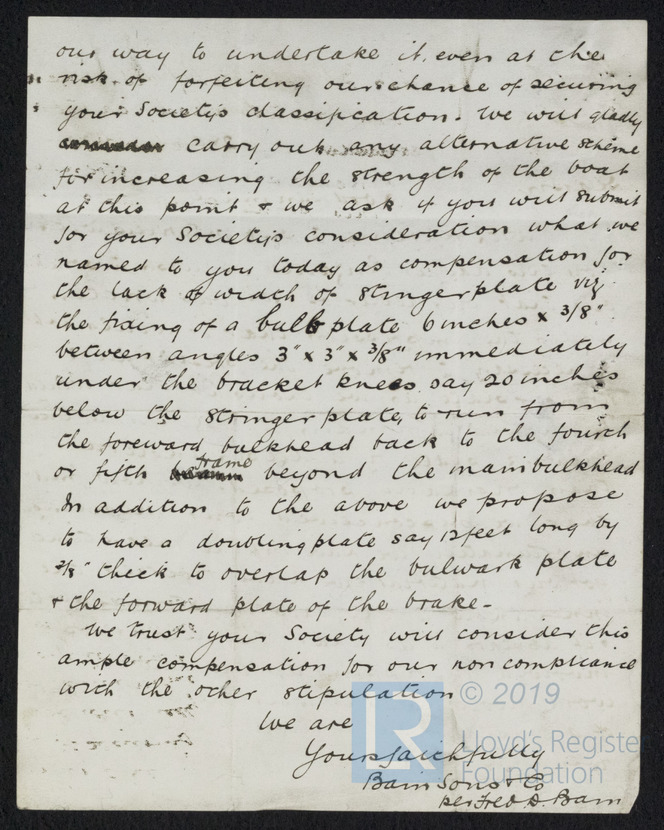 our way to undertake it, even at the
risk of forfeiting our chance of securing
your Society's classification. We will gladly
carry out any alternative scheme
for increasing the strength of the boat
at this point & we ask if you will submit
for your Society's consideration what we
named to you today as compensation for
the lack of width of stringer plate viz
the fixing of a bulb plate 6 inches x 3/8"
between angles 3" x 3" x 3/8" immediately
under the bracket knees say 20 inches
below the stringer plate, to run from
the foreward bulkhead back to the fourth
or fifth frame beyond the main bulkhead
In addition to the above we propose
to have a doubling plate say 12 feet long by
3/8" thick to overlap the bulwark plate
& the forward plate of the brake -
We trust your Society will consider this
ample compensation for our non compliance
with the other stipulation
We are
Yours faithfully
Bain Sons & Co
per Fred D. Bain
© 2019
Lloyd's Registe
Foundation